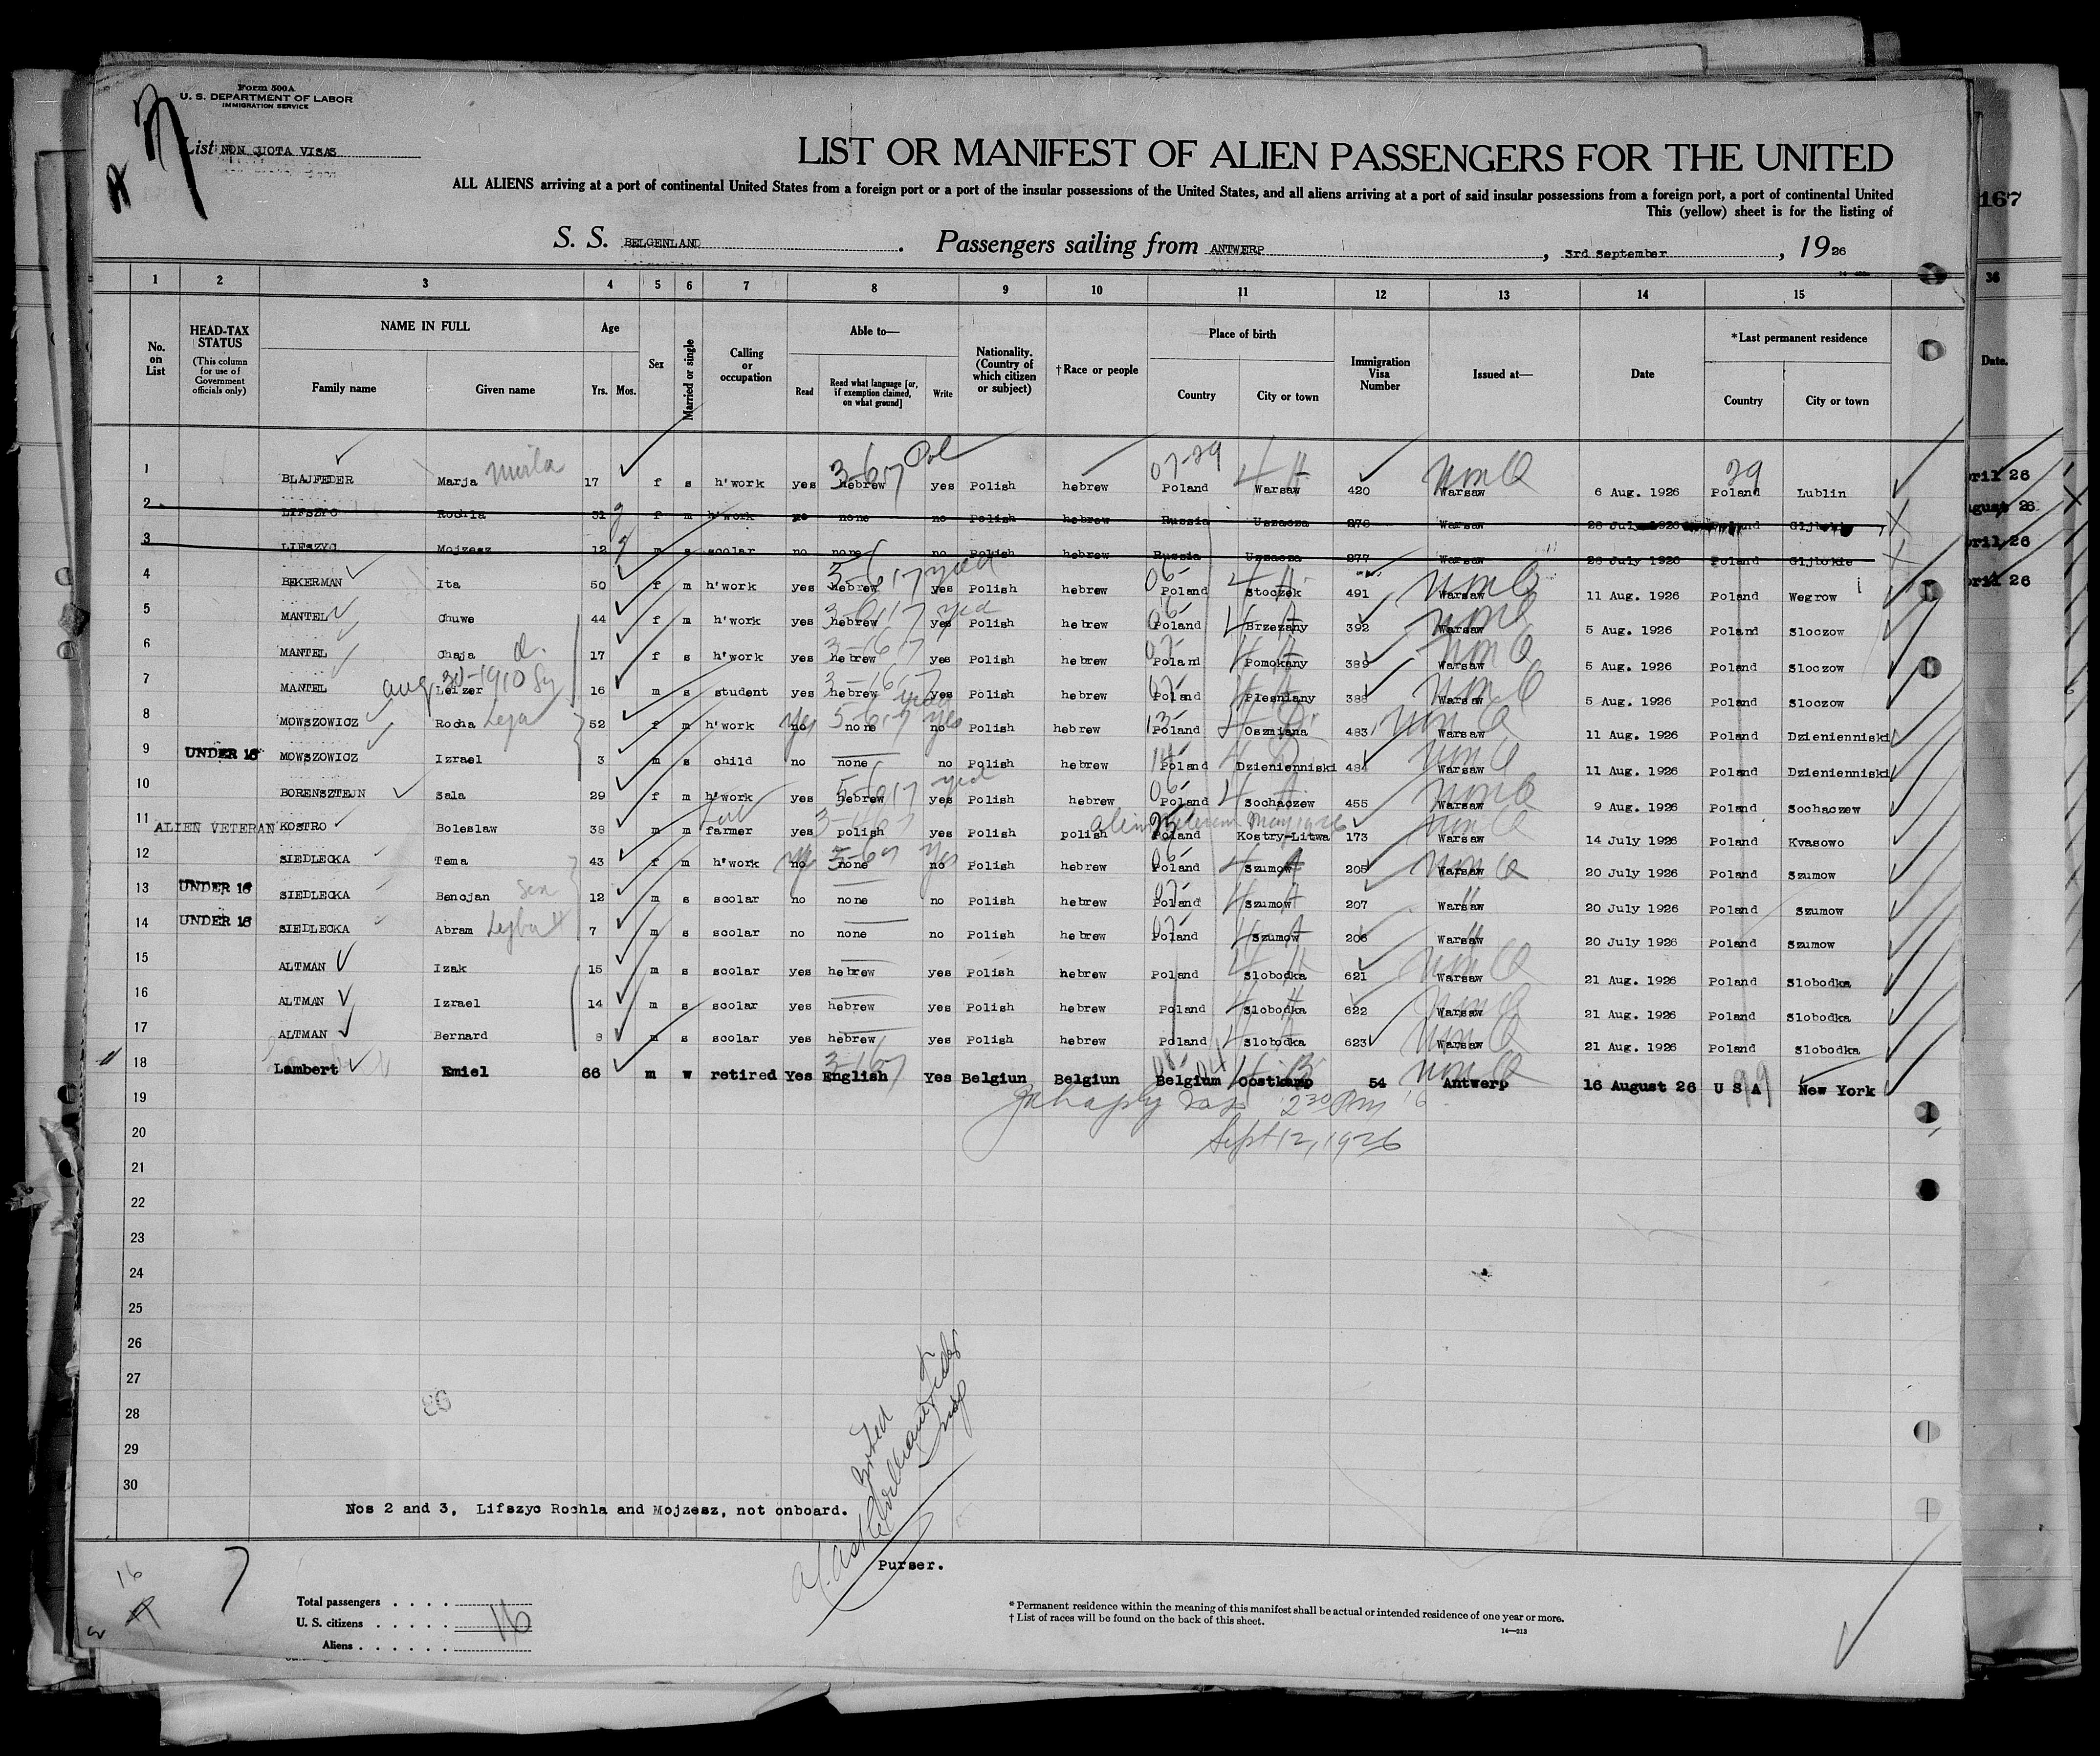 Form 500A
U. S. DEPARTMENT OF LABOR
IMMIGRATION SERVICE
List NON QUOTA VISAS
LIST OR MANIFEST OF ALIEN PASSENGERS FOR THE UNITED
ALL ALIENS arriving at a port of continental United States from a foreign port or a port of the insular possessions of the United States, and all aliens arriving at a port of said insular possessions from a foreign port, a port of continental United
This (yellow) sheet is for the listing of
167
S. S. BELGENLAND . Passengers sailing from ANTWERP , 3rd September , 1926
1 2 3 4 5 6 7 8 9 10 11 12 13 14 15 36
No. on List
HEAD-TAX STATUS (This column for use of Government officials only)
NAME IN FULL Family name Given name
Age Yrs. Mos.
Sex
Married or single
Calling or occupation
Able to— Read Read what language [or, if exemption claimed, on what ground] Write
Nationality. (Country of which citizen or subject)
†Race or people
Place of birth Country City or town
Immigration Visa Number
Issued at—
Date
*Last permanent residence Country City or town
Date.
1 BLAJFEDER Marja 17 f s h'work yes hebrew yes Polish hebrew Poland Warsaw 420 Warsaw 6 Aug. 1926 Poland Lublin
2 LIFSZYC Rochla 31 f m h'work no none no Polish hebrew Russia Uszacza 276 Warsaw 28 July 1926
3 LIFSZYC Mojzesz 12 m s scolar no none no Polish hebrew Russia Uszacza 277 Warsaw 28 July 1926 Poland Gljbokie
4 BEKERMAN Ita 50 f m h'work yes hebrew yes Polish hebrew Poland Stoczek 491 Warsaw 11 Aug. 1926 Poland Wegrow
5 MANTEL Chuwe 44 f m h'work yes hebrew yes Polish hebrew Poland Brzezany 392 Warsaw 5 Aug. 1926 Poland Sloczow
6 MANTEL Chaja 17 f s h'work yes hebrew yes Polish hebrew Poland Pomokany 389 Warsaw 5 Aug. 1926 Poland Sloczow
7 MANTEL Leizer 16 m s student yes hebrew yes Polish hebrew Poland Plesniany 388 Warsaw 5 Aug. 1926 Poland Sloczow
8 MOWSZOWICZ Rocha Leja 52 f m h'work no none no Polish hebrew Poland Oszmiana 483 Warsaw 11 Aug. 1926 Poland Dzienienniski
9 UNDER 16 MOWSZOWICZ Izrael 3 m s child no none no Polish hebrew Poland Dzienienniski 484 Warsaw 11 Aug. 1926 Poland Dzienienniski
10 BORENSZTEJN Sala 29 f m h'work yes hebrew yes Polish hebrew Poland Sochaczew 455 Warsaw 9 Aug. 1926 Poland Sochaczew
11 ALIEN VETERAN KOSTRO Boleslaw 38 m m farmer yes polish yes Polish polish Poland Kostry-Litwa 173 Warsaw 14 July 1926 Poland Kvasowo
12 SIEDLECKA Tema 43 f m h'work no none no Polish hebrew Poland Szumow 205 Warsaw 20 July 1926 Poland Szumow
13 UNDER 16 SIEDLECKA Bencjan 12 m s scolar no none no Polish hebrew Poland Szumow 207 Warsaw 20 July 1926 Poland Szumow
14 UNDER 16 SIEDLECKA Abram Lejba 7 m s scolar no none no Polish hebrew Poland Szumow 206 Warsaw 20 July 1926 Poland Szumow
15 ALTMAN Izak 15 m s scolar yes hebrew yes Polish hebrew Poland Slobodka 621 Warsaw 21 Aug. 1926 Poland Slobodka
16 ALTMAN Izrael 14 m s scolar yes hebrew yes Polish hebrew Poland Slobodka 622 Warsaw 21 Aug. 1926 Poland Slobodka
17 ALTMAN Bernard 8 m s scolar yes hebrew yes Polish hebrew Poland Slobodka 623 Warsaw 21 Aug. 1926 Poland Slobodka
18 Lambert Emiel 66 m w retired Yes English Yes Belgiun Belgiun Belgium Oostkamp 54 Antwerp 16 August 26 U S A New York
19 2 30 PM
20 Sept 12, 1926
21
22
23
24
25
26
27
28 86
29
30
Nos 2 and 3, Lifszyc Rochla and Mojzesz, not onboard.
Purser.
16
7
Total passengers . . . .
U. S. citizens . . . . . 16
Aliens . . . . . .
* Permanent residence within the meaning of this manifest shall be actual or intended residence of one year or more.
† List of races will be found on the back of this sheet.
14—213